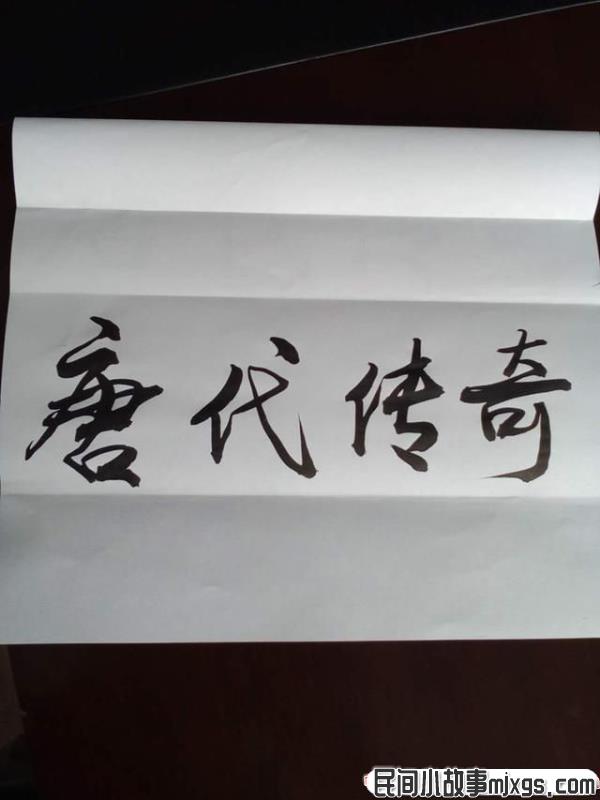 唐代传奇
民间小故事mjxgs.com